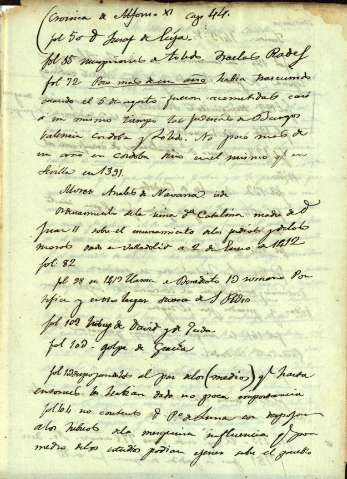 Cronica de Alfonso XI Cap 44.
fol 50 d Jusaf de Ecija
fol 55 a Toledo Rades
fol 72 Poco mas de un año habia trascurrido
cuando el 5 de agosto fueron acometidas casi
a un mismo tiempo las juderias de Burgos
Valencia Cordoba y Toledo. No poco mas de
un año en Cordoba sino en el mismo y en
Sevilla en 1391.
Anales de Navarra
Ordenamiento de la reina Dª Catalina madre de D
Juan II sobre el encerramiento de los judios y de los
moros dado en Valladolid a 2 de Enero de 1412
fol. 82
fol 98 en 1413 llama a Benedicto 13 romano Pon
tifice y en otro lugar de S Pedro
fol 109 de David y de
fol 10 golpe de Gracia
fol al par de los (medios) qe hasta
entonces le habian dado no poca importancia
fol no contento D Po de Luna con
a los hebreos de la influencia qe por
medio de los estudios podian ejercer sobre el pueblo